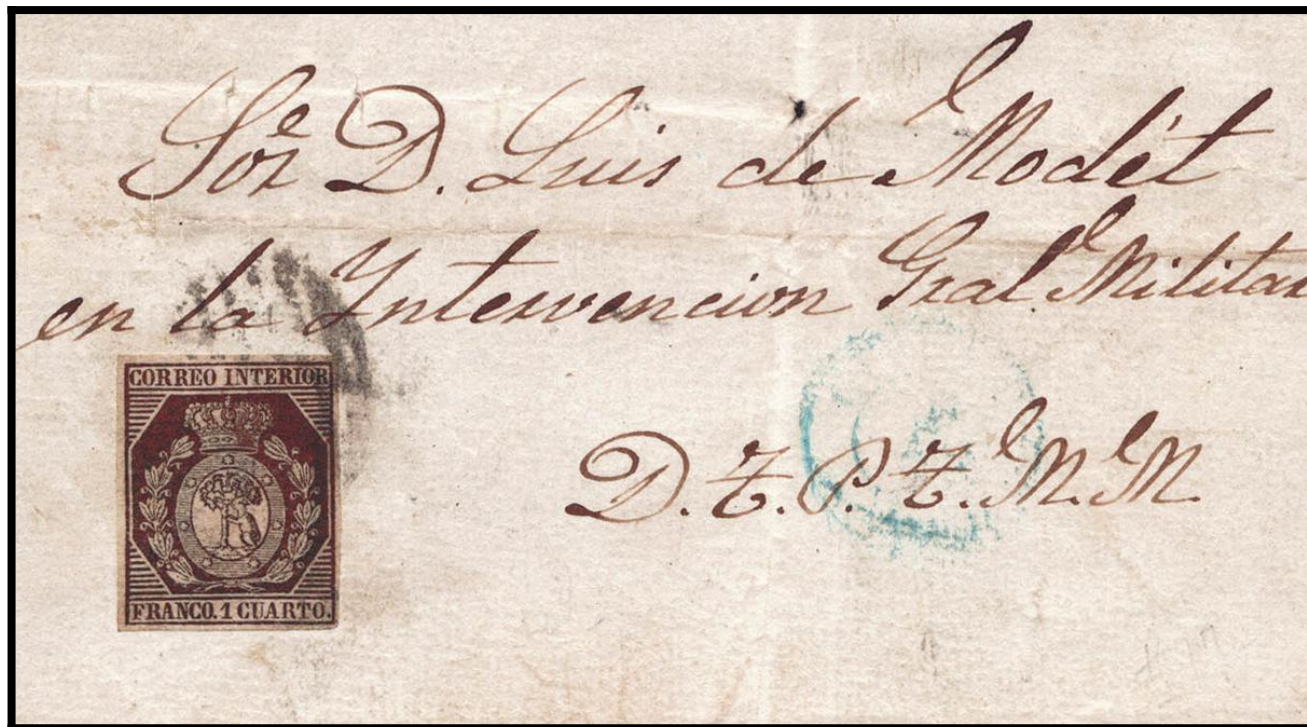 Sor. D. Luis de Modét
en la Yntervencion Gral Militar
CORREO INTERIOR
FRANCO. 1 CUARTO.